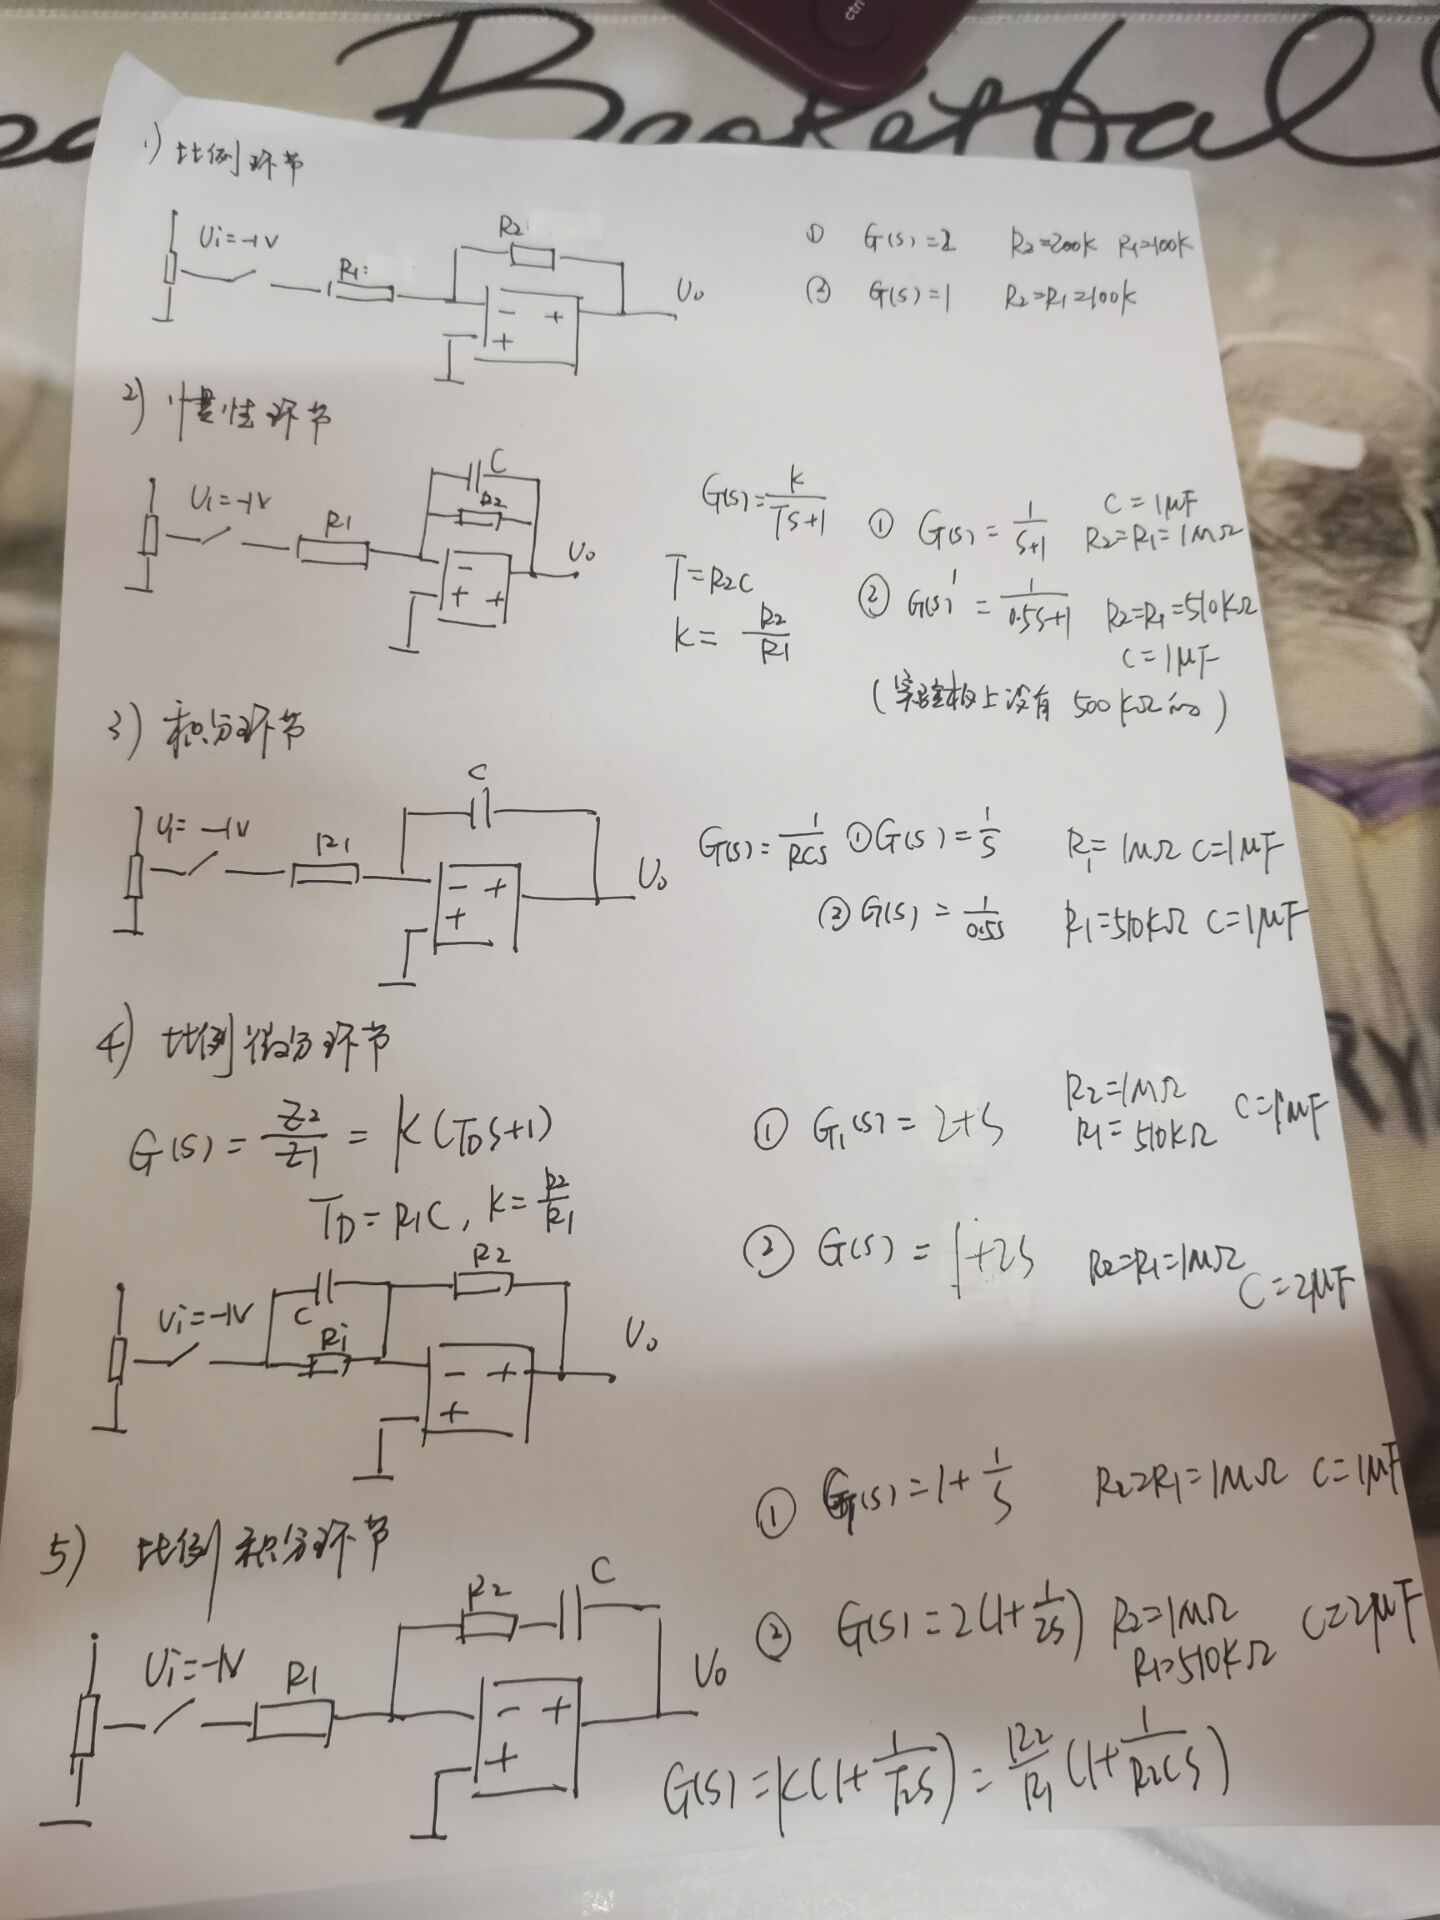 Basketball
ctrl
1) 比例环节
Ui=-1V
R1:
R2:
- +
+
U0
① G(s)=2 R2=200k R1=100k
② G(s)=1 R2=R1=100k
2) 惯性环节
Ui=-1V
R1
C
R2
-
+ +
U0
G(s)=K/(Ts+1)
T=R2C
K=R2/R1
① G(s)=1/(s+1) C=1μF
R2=R1=1MΩ
② G(s)'=1/(0.5s+1) R2=R1=510KΩ
C=1μF
(实验板上没有 500KΩ的)
3) 积分环节
Ui=-1V
R1
C
- +
+
U0
G(s)=1/(RCS) ① G(s)=1/S R1=1MΩ C=1μF
② G(s)=1/(0.5S) R1=510KΩ C=1μF
4) 比例微分环节
G(s)=Z2/Z1=K(TDS+1)
TD=R1C, K=R2/R1
① G1(s)=2+S R2=1MΩ
R1=510KΩ C=1μF
② G(s)=1+2S R2=R1=1MΩ
C=2μF
Ui=-1V
C
Ri
R2
- +
+
U0
5) 比例积分环节
① G(s)=1+1/S R2=R1=1MΩ C=1μF
② G(s)=2(1+1/(2S)) R2=1MΩ C=2μF
R1=510KΩ
Ui=-1V
R1
R2
C
- +
+
U0
G(s)=K(1+1/(T2S))=R2/R1(1+1/(R2CS))
RY